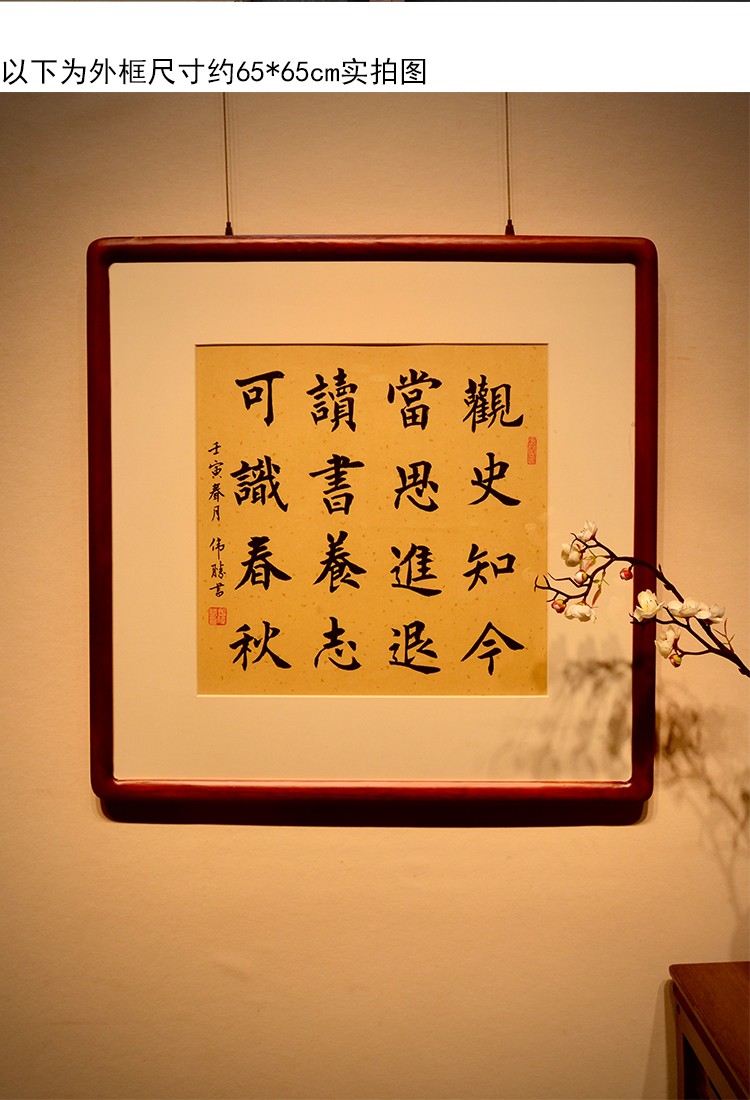 以下为外框尺寸约65*65cm实拍图
觀史知今
當思進退
讀書養志
可識春秋
壬寅春月 伟勝書